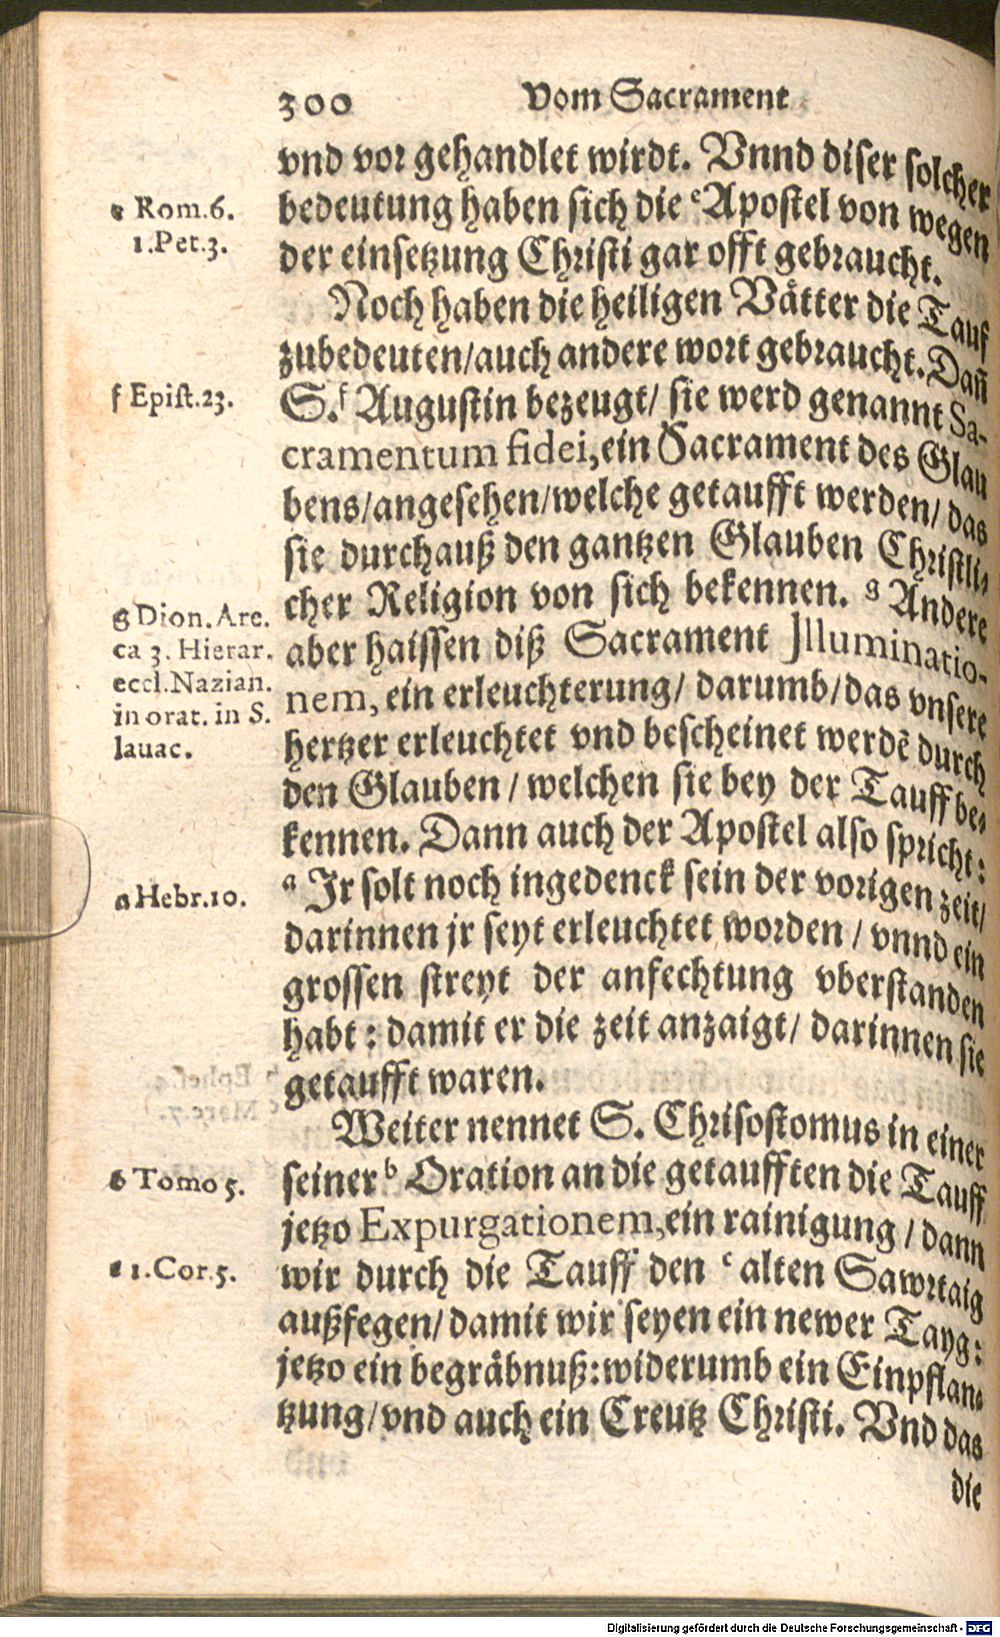 300 Vom Sacrament
vnd vor gehandlet wirdt. Vnnd diser solcher
bedeutung haben sich die ᵉApostel von wegen
der einsetzung Christi gar offt gebraucht.
Noch haben die heiligen Vätter die Tauf
zubedeuten/auch andere wort gebraucht. Dañ
S.ᶠ Augustin bezeugt/ sie werd genannt Sa-
cramentum fidei, ein Sacrament des Glau
bens/angesehen/welche getaufft werden/ das
sie durchauß den gantzen Glauben Christli-
cher Religion von sich bekennen. ᵍ Andere
aber haissen diß Sacrament Illuminatio-
nem, ein erleuchterung/ darumb/das vnsere
hertzer erleuchtet vnd bescheinet werdē durch
den Glauben / welchen sie bey der Tauff be-
kennen. Dann auch der Apostel also spricht:
ᵃ Jr solt noch ingedenck sein der vorigen zeit/
darinnen jr seyt erleuchtet worden / vnnd ein
grossen streyt der anfechtung vberstanden
habt: damit er die zeit anzaigt/ darinnen sie
getaufft waren.
Weiter nennet S. Chrisostomus in einer
seiner ᵇ Oration an die getaufften die Tauff
jetzo Expurgationem, ein rainigung / dann
wir durch die Tauff den ᶜ alten Sawrtaig
außfegen/ damit wir seyen ein newer Tayg:
jetzo ein begräbnuß: widerumb ein Einpflan-
tzung/vnd auch ein Creutz Christi. Vnd das
die
e Rom.6.
1.Pet.3.
f Epist.23.
g Dion. Are.
ca 3. Hierar.
eccl. Nazian.
in orat. in S.
lauac.
a Hebr.10.
b Tomo 5.
c 1.Cor.5.
Digitalisierung gefördert durch die Deutsche Forschungsgemeinschaft - DFG